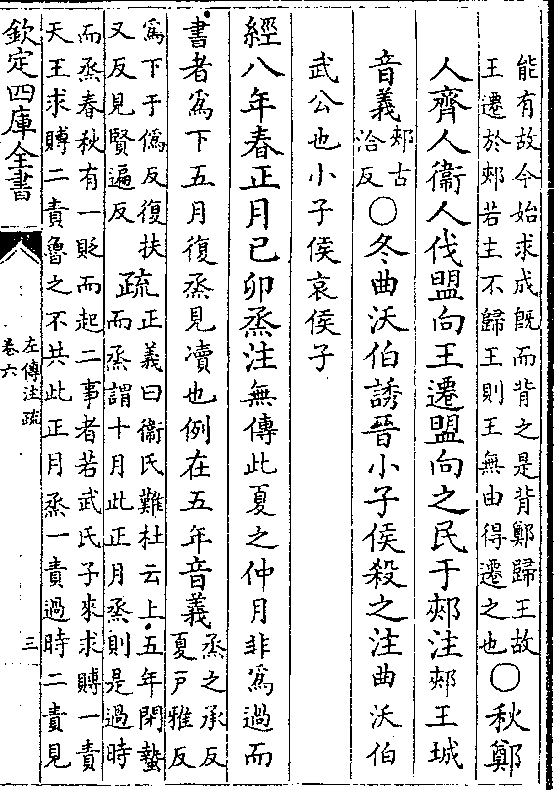 能有故今始求成既而背之是背鄭歸王故
王遷於郟若主不歸王則王無由得遷之也
○秋鄭
人齊人衞人伐盟向王遷盟向之民于郟注郟王城
音義郟古
洽反
○冬曲沃伯誘晉小子侯殺之注曲沃伯
武公也小子侯哀侯子
經八年春正月已卯烝注無傳此夏之仲月非為過而
書者為下五月復烝見凟也例在五年音義烝之承反
夏戸雅反
為下于偽反復扶
又反見賢遍反
疏正義曰衞氏難杜云上五年閉蟄
而烝謂十月此正月烝則是過時
而烝春秋有一貶而起二事者若武氏子來求賻一責
天王求賻二責魯之不共此正月烝一責過時二責見
欽定四庫全書
左傳注疏
卷六
三